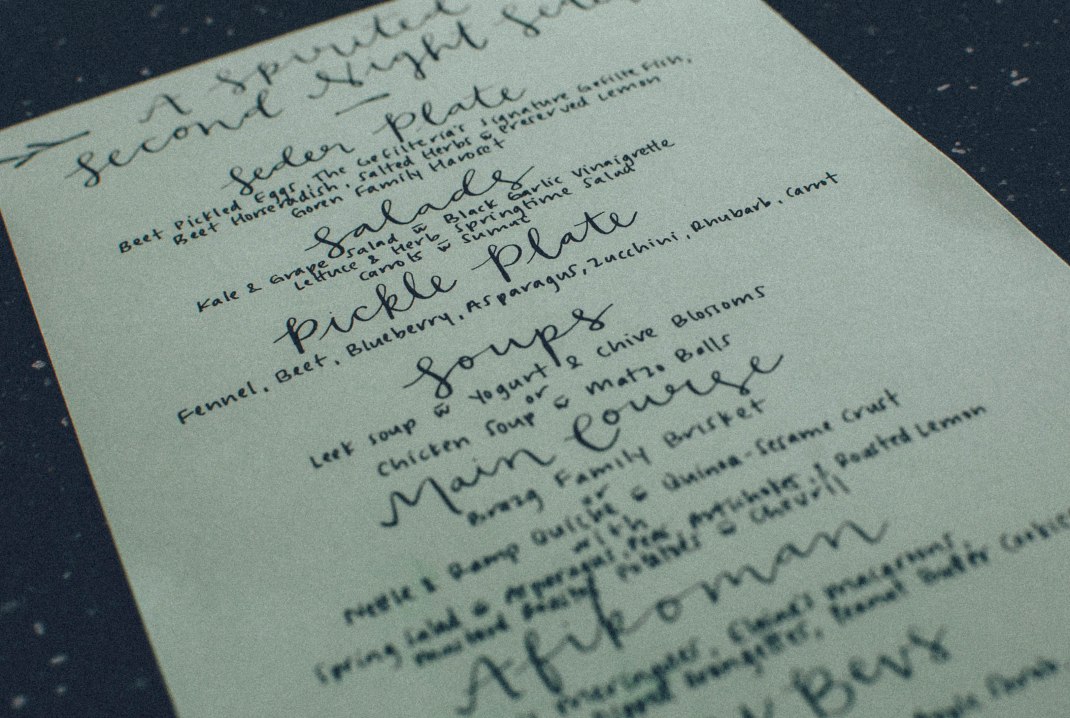 A Spirited
Second Night Seder
Seder Plate
Beet Pickled Eggs, The Gefilteria's Signature Gefilte Fish,
Beet Horseradish, Salted Herbs w Preserved Lemon
Goren Family Haroset
Salads
Kale & Grape Salad w Black Garlic Vinaigrette
Lettuce & Herb Springtime Salad
Carrots w Sumac
Pickle Plate
Fennel, Beet, Blueberry, Asparagus, Zucchini, Rhubarb, Carrot
Soups
Leek Soup w Yogurt & Chive Blossoms
or
Chicken Soup w Matzo Balls
Main Course
Brazg Family Brisket
or
Nettle & Ramp Quiche w Quinoa-Sesame Crust
with
Spring Salad w Asparagus, Pea, Artichokes, & Roasted Lemon
Mustard Roasted Potatoes w Chervil
Afikoman
Meringues, Elaine's Macaroons,
Dipped Orangettes, Peanut Butter Cookies
Bevs